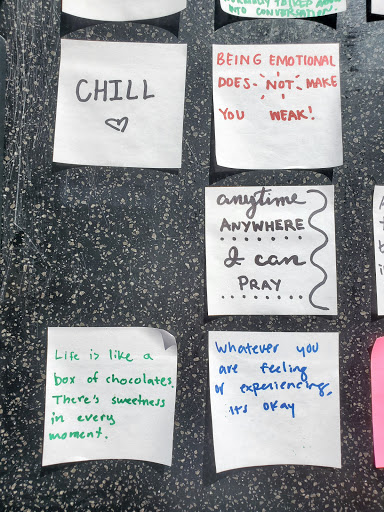 INTO CONVERSATION
CHILL
BEING EMOTIONAL
DOES NOT MAKE
YOU WEAK!
anytime
ANYWHERE
I can
PRAY
Life is like a
box of chocolates.
There's sweetness
in every
moment.
Whatever you
are feeling
or experiencing,
its okay